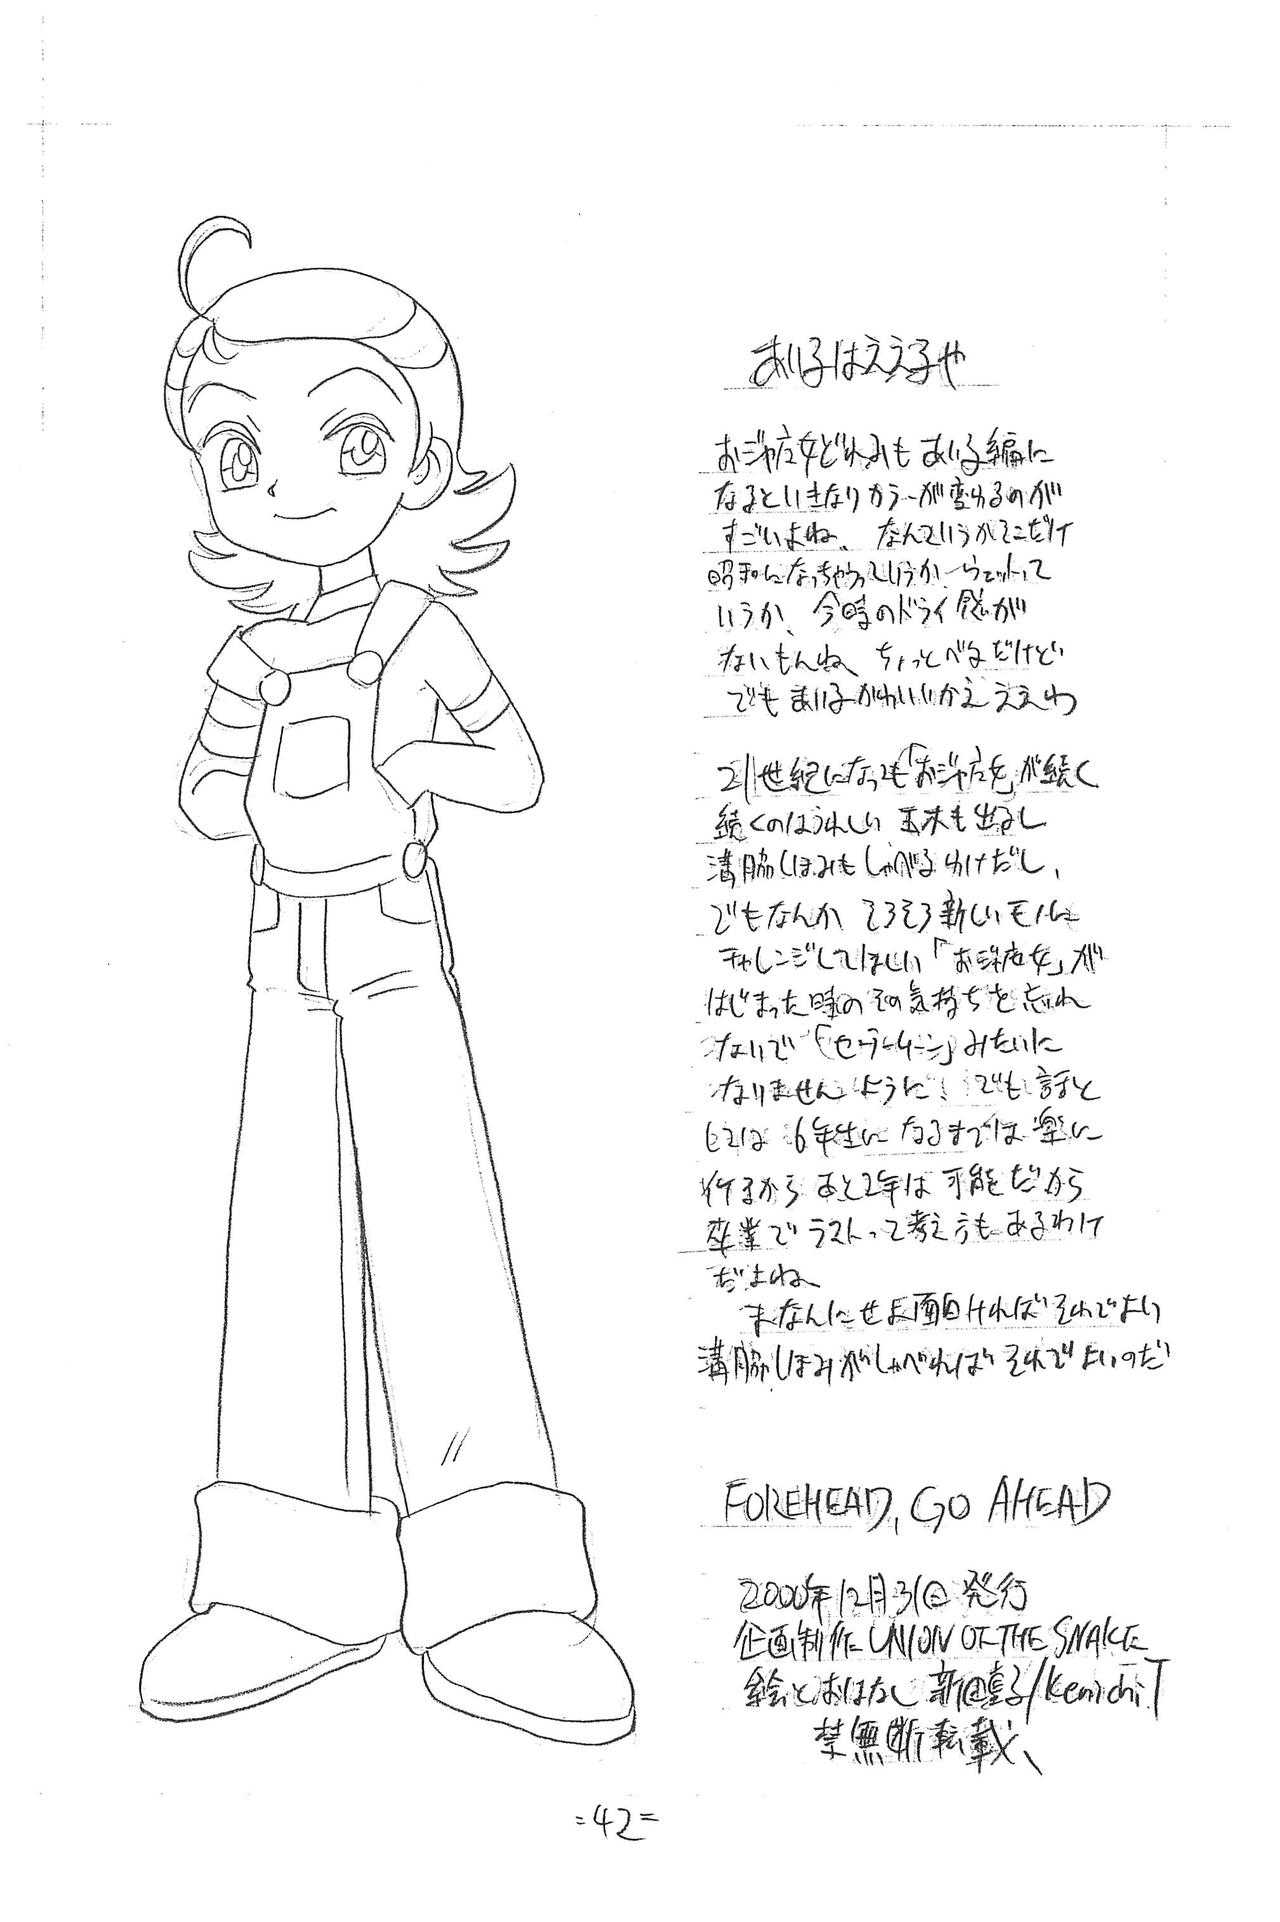 あい子はええ子や
おジャ魔女どれみも あい子編に
なるといきなりカラーが変わるのが
すごいよね、 なんていうかそこだけ
昭和になっちゃうっていうか ウェットって
いうか、今時のドライ感が
ないもんね ちょっとベタだけど
でもあい子がかわいいからええわ
21世紀になっても「おジャ魔女」が続く
続くのはうれしい 玉木も出るし
溝脇しほみもしゃべるわけだし、
でもなんか そろそろ新しいモノに
チャレンジしてほしい「おジャ魔女」が
はじまった時のその気持ちを忘れ
ないで「セーラームーン」みたいに
なりませんように、 でも話と
しては 6年生になるまでは楽に
行けるから あと2年は可能だから
卒業でラストって考え方もあるわけ
だよね
まなんにせよ面白ければそれでよい
溝脇しほみがしゃべればそれでよいのだ
FOREHEAD, GO AHEAD
2000年12月31日発行
企画制作 UNION OF THE SNAKE
絵とおはなし 新田/Kenichi T
禁無断転載、
=42=